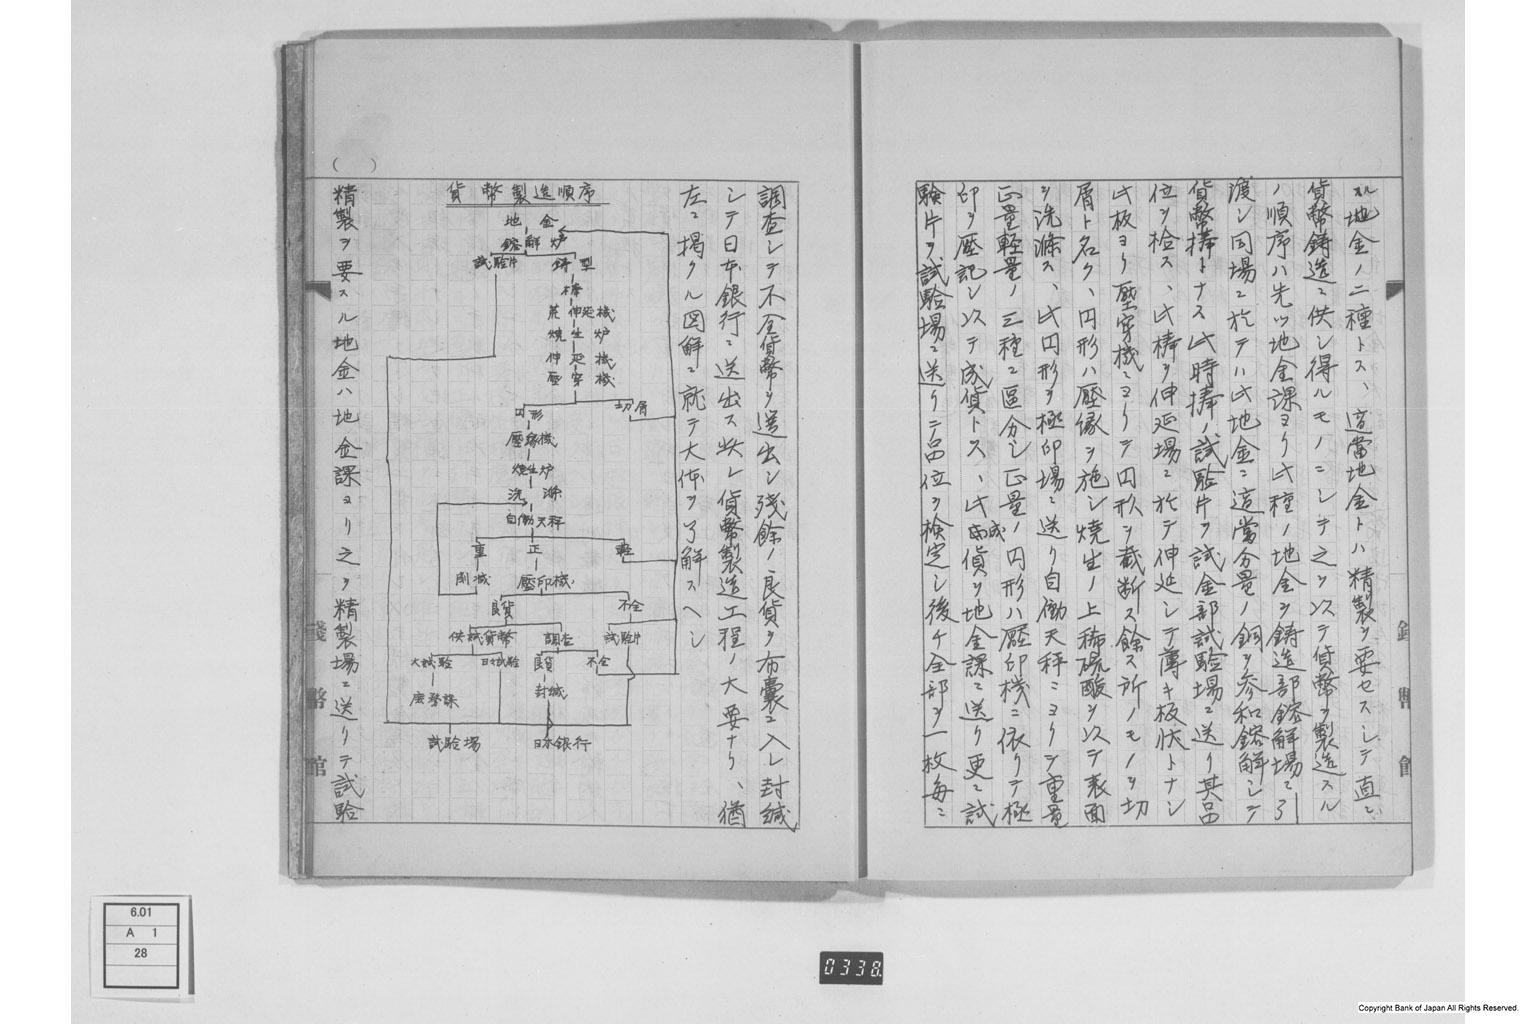 ル地金ノ二種トス、適當地金トハ精製ヲ要セスシテ直ニ
貨幣鋳造ニ供シ得ルモノニシテ之ヲ以テ貨幣ヲ製造スル
ノ順序ハ先ツ地金課ヨリ此種ノ地金ヲ鋳造部鎔解場ニ
渡シ同場ニ於テハ此地金ニ適當分量ノ銅ヲ参和鎔解シテ
貨幣棒トナス此時棒ノ試験片ヲ試金部試験場ニ送リ其品
位ヲ検ス、此棒ヲ伸延場ニ於テ伸延シテ薄キ板状トナシ
此板ヨリ壓穿機ニヨリテ円形ヲ截断ス餘ス所ノモノヲ切
屑ト名ク、円形ハ壓縁ヲ施シ焼生ノ上稀硫酸ヲ以テ表面
ヲ洗滌ス、此円形ヲ極印場ニ送リ自働天秤ニヨリテ重量
正量軽量ノ三種ニ區分シ正量ノ円形ハ壓印機ニ依リテ極
印ヲ壓記シ以テ成貨トス、此成貨ヲ地金課ニ送リ更ニ試
験片ヲ試験場ニ送リテ品位ヲ検定シ後チ全部ヲ一枚毎ニ
調査シテ不全貨幣ヲ選出シ残餘ノ良貨ヲ布嚢ニ入レ封緘
シテ日本銀行ニ送出ス以上貨幣製造工程ノ大要ナリ、猶
左ニ掲クル図解ニ就テ大体ヲ了解スヘシ
貨幣製造順序
地金
鎔解炉
試験片 鋳型
棒
荒伸延機
焼生炉
伸延機
壓穿機
円形 切屑
壓縁機
焼生炉
洗滌
自働天秤
重 正 軽
削減 壓印機
良貨 不全
供試貨幣 調査 試験片
大試験 日本試験 良貨 不全
封緘
試験場 日本銀行
精製ヲ要スル地金ハ地金課ヨリ之ヲ精製場ニ送リテ試験
錢幣館
6.01
A 1
28
0338.
Copyright Bank of Japan All Rights Reserved.